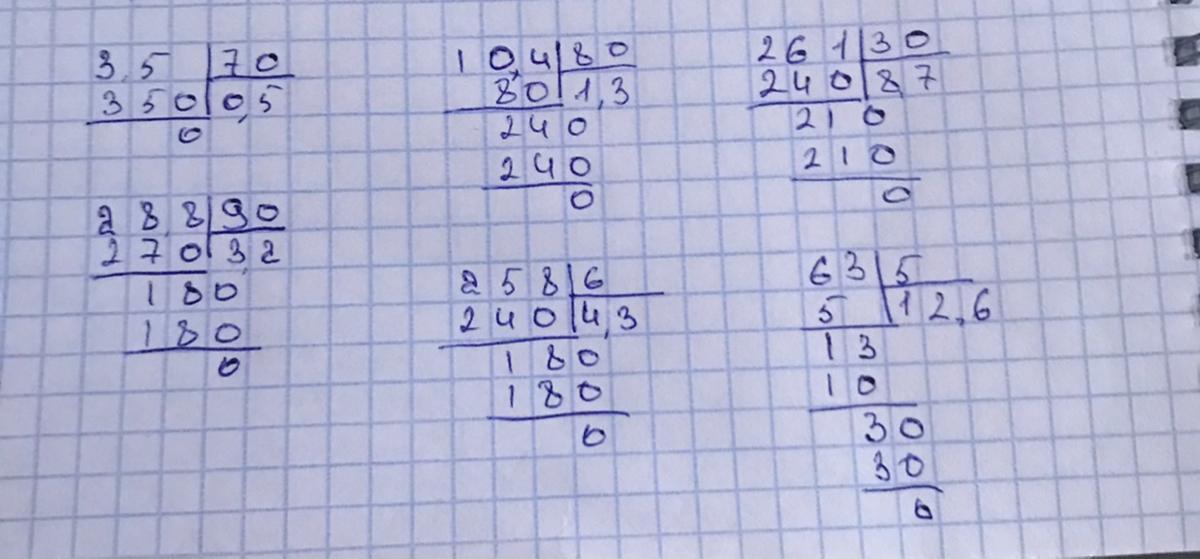 3,5 70
350 0,5
0
10,4 80
80 1,3
240
240
0
261 30
240 8,7
210
210
0
28,8 90
270 3,2
180
180
0
258 6
240 4,3
180
180
0
63 5
5 12,6
13
10
30
30
0